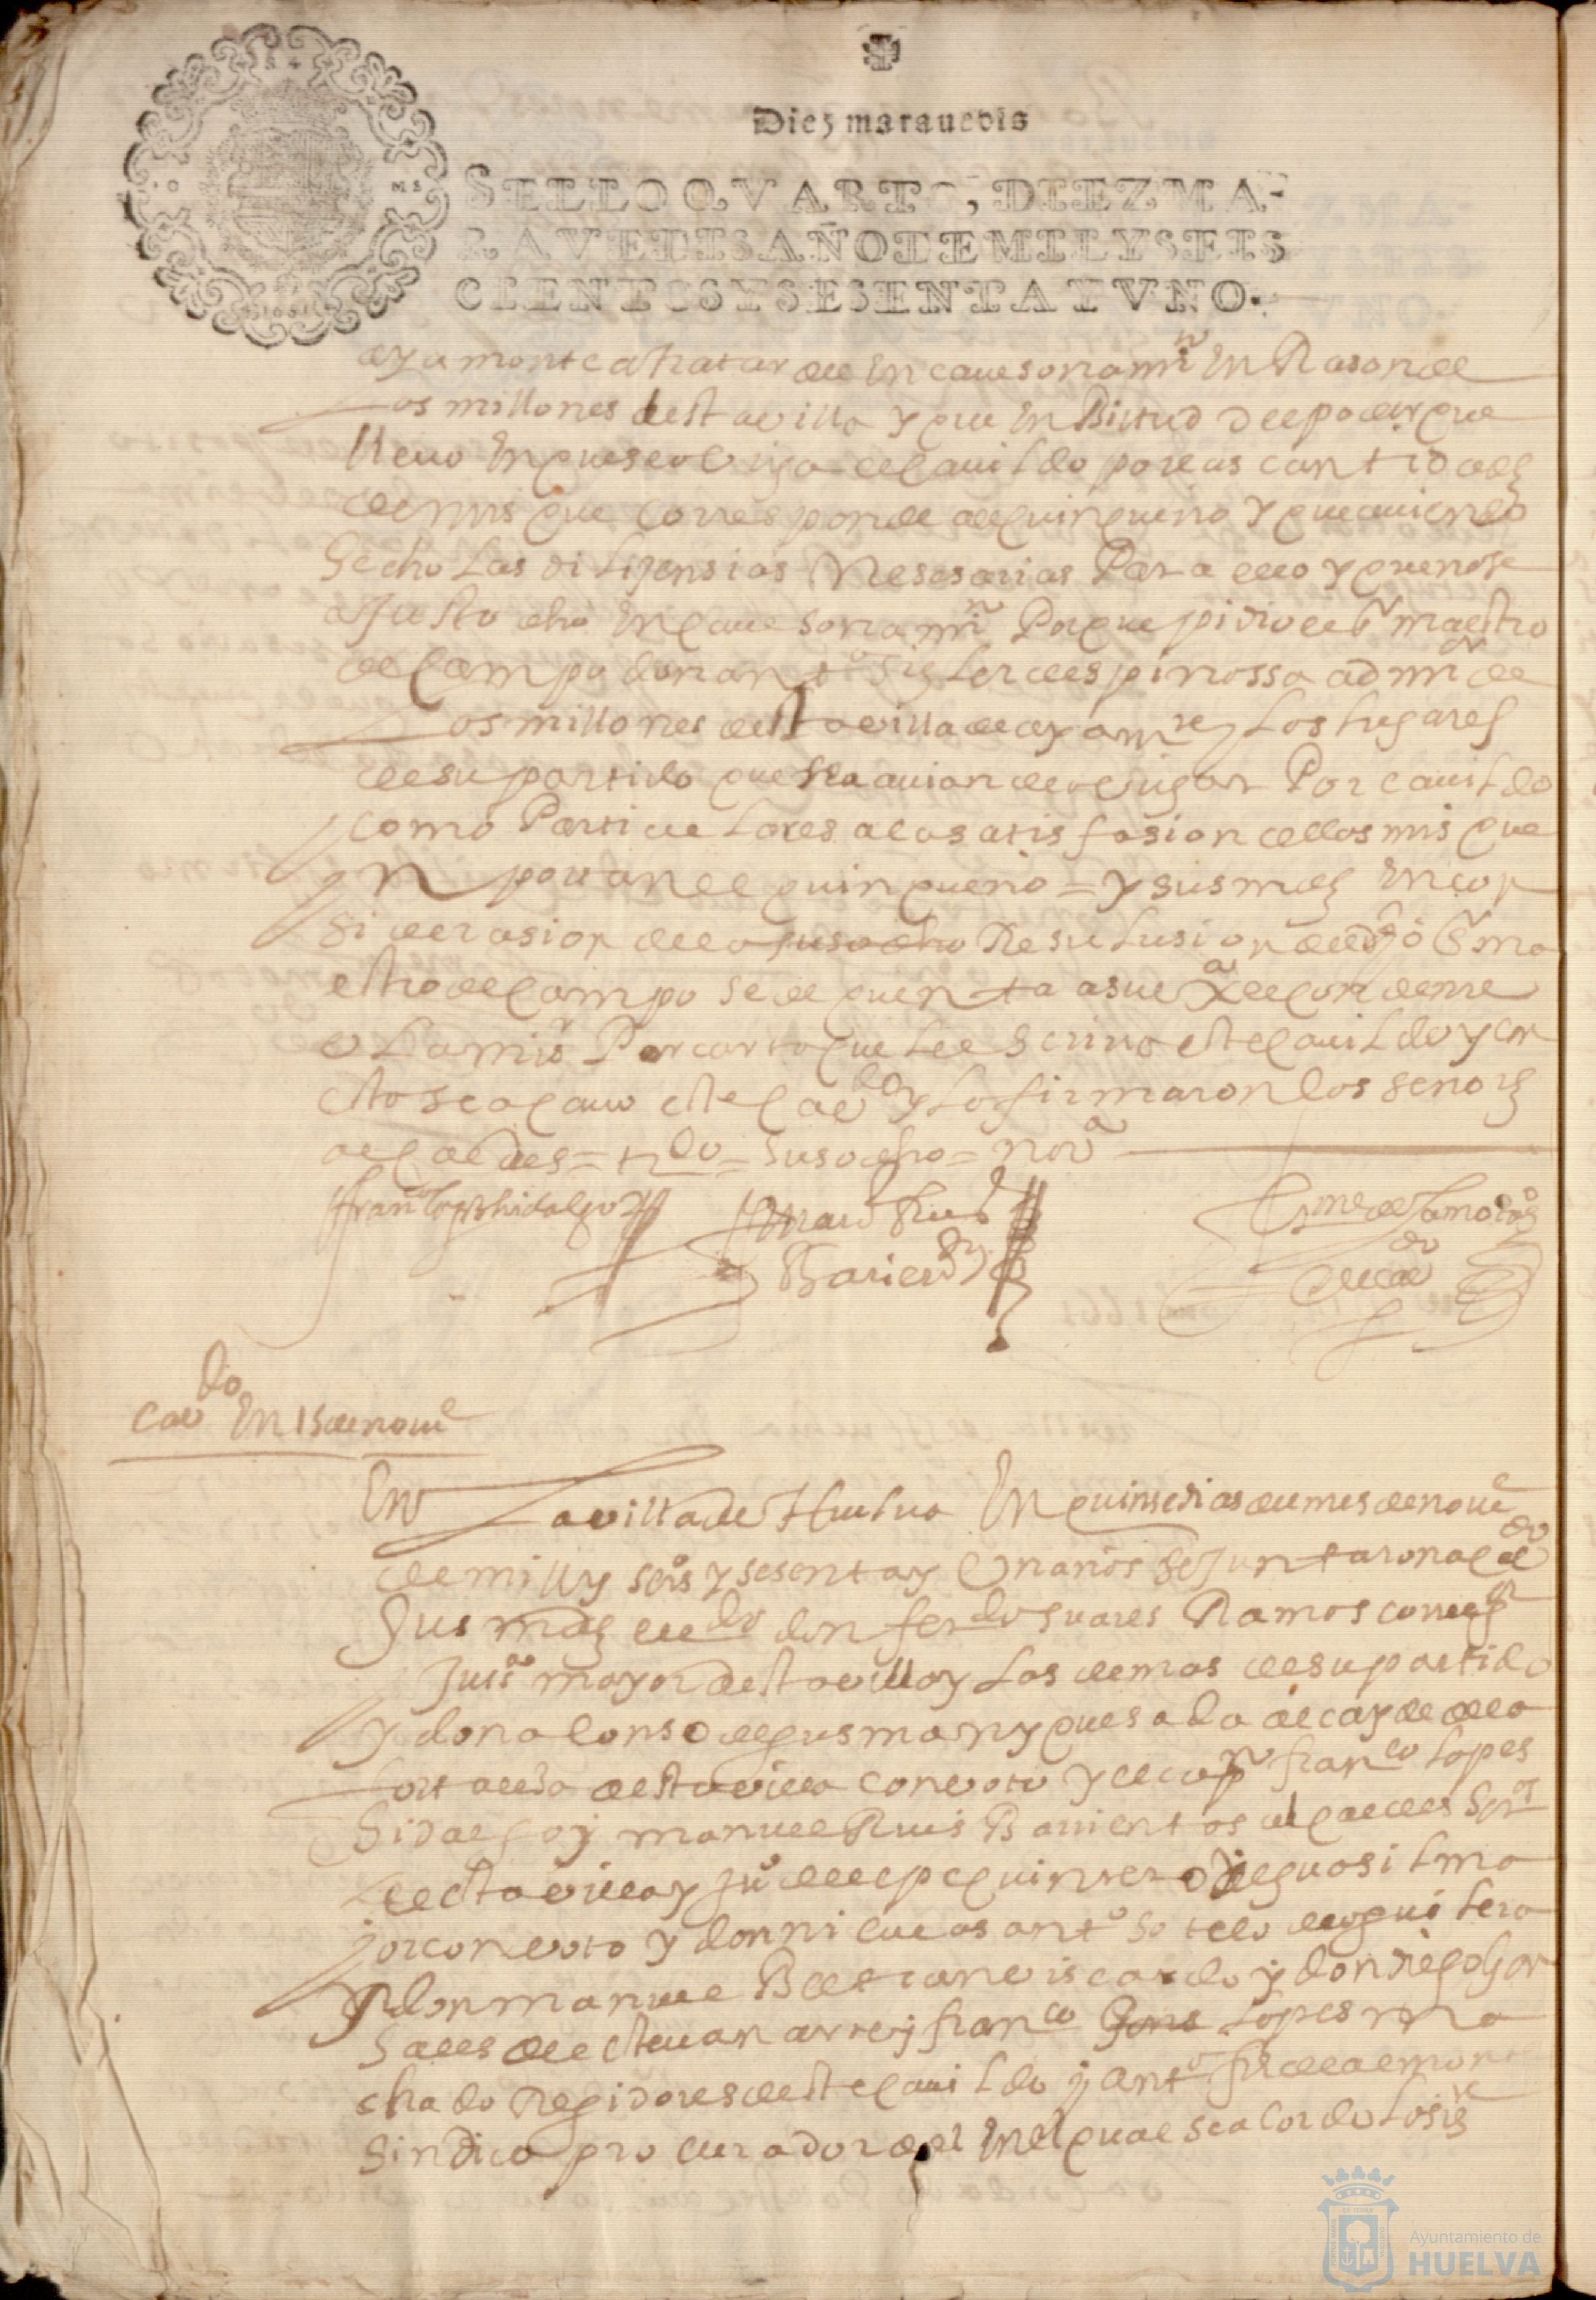 Diez marauedis
SELLO QVARTO, DIEZ MA-
RAVEDIS AÑO DE MIL Y SEIS
CIENTOS Y SESENTA Y VNO.
ayamonte a tratar del encauesonami.º en Rason de
los millones desta villa y que en Birtud del poder que
lleuo en que se obliga el cauildo por las cantidades
de mrs que corresponde al quinquenio y que auiendo
hecho las dilijensias Nesesarias Para ello y que no se
ajusto dho encauesonami.º Porque pidio el s.r maestro
de campo don ant.º de espinossa adm.or de
los millones desta villa de ayam.te y los lugares
de su partido que se auian de obligar Por cauildo
como Particulares a la satisfasion de los mrs que
ynportan el quinquenio = y sus mds en con
siderasion de la susodho Resulusion del dho s.r ma
estro de campo se de quenta a su ex.a el conde mi
s.r Por carta que le escriua este cauildo y con
esto se acauo este cau.do y lo firmaron los senores
alcaldes = t.do = susodho = no v.a
fran.co lopez hidalgo
Man.l Ruis
Barien.s
cau.do en 15 de nou.e
En la villa de Huelua En quinse dias del mes de nou.e
de mill y seis.os y sesenta y Un años se juntaron a cau.do
sus mds el l.do don fer.do suares Ramos correg.or
Just.a mayor desta villa y las demas de su partido
y don alonso de gusman y quesada alcayde de la
fortalesa desta villa con voto y el cap.n fran.co lopes
hidalgo y manuel Ruis Barientos alcaldes hor.os
desta villa y ju.º quintero alguasil ma
jor con voto y don nicolas ant.º sotelo de aguilera
y don manuel Beltran viscardo y don diego gon
sales de esteuan arre y fran.co Gons lopes ma
chado Regidores deste cauildo y ant.º frr de almonte
sindico procurador gel en el qual se acordo lo sig.te
Ayuntamiento de
HUELVA